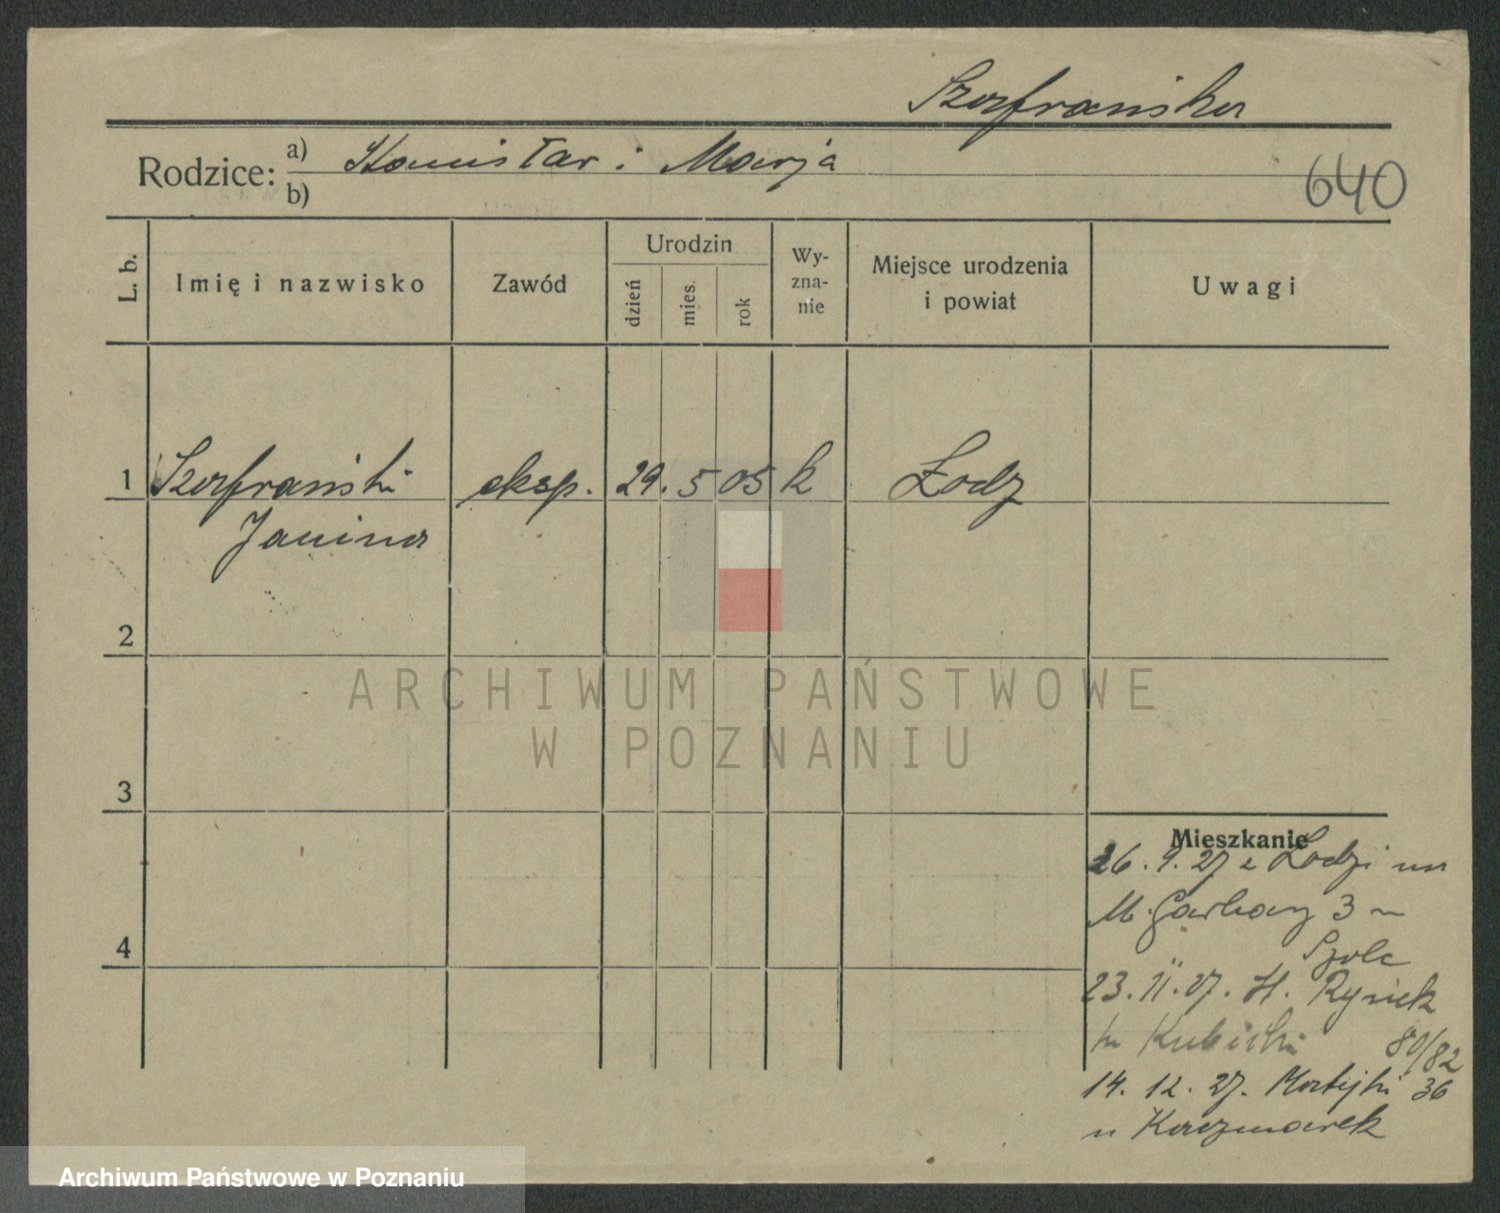 Szafrańska
Rodzice: a) Stanisław i Marja
b)
640
L. b.
Imię i nazwisko
Zawód
Urodzin
dzień
mies.
rok
Wy-
zna-
nie
Miejsce urodzenia
i powiat
Uwagi
1 Szafrański eksp. 29. 5 05 k Łodz
Janina
2
ARCHIWUM PAŃSTWOWE
W POZNANIU
3
Mieszkanie
26. 9. 27 z Łodzi na
M. Garbary 3 u
Szolc
23. 11. 27. St. Rynek
80/82
u Kubicki
14. 12. 27. Matejki 36
u Kaczmarek
4
Archiwum Państwowe w Poznaniu